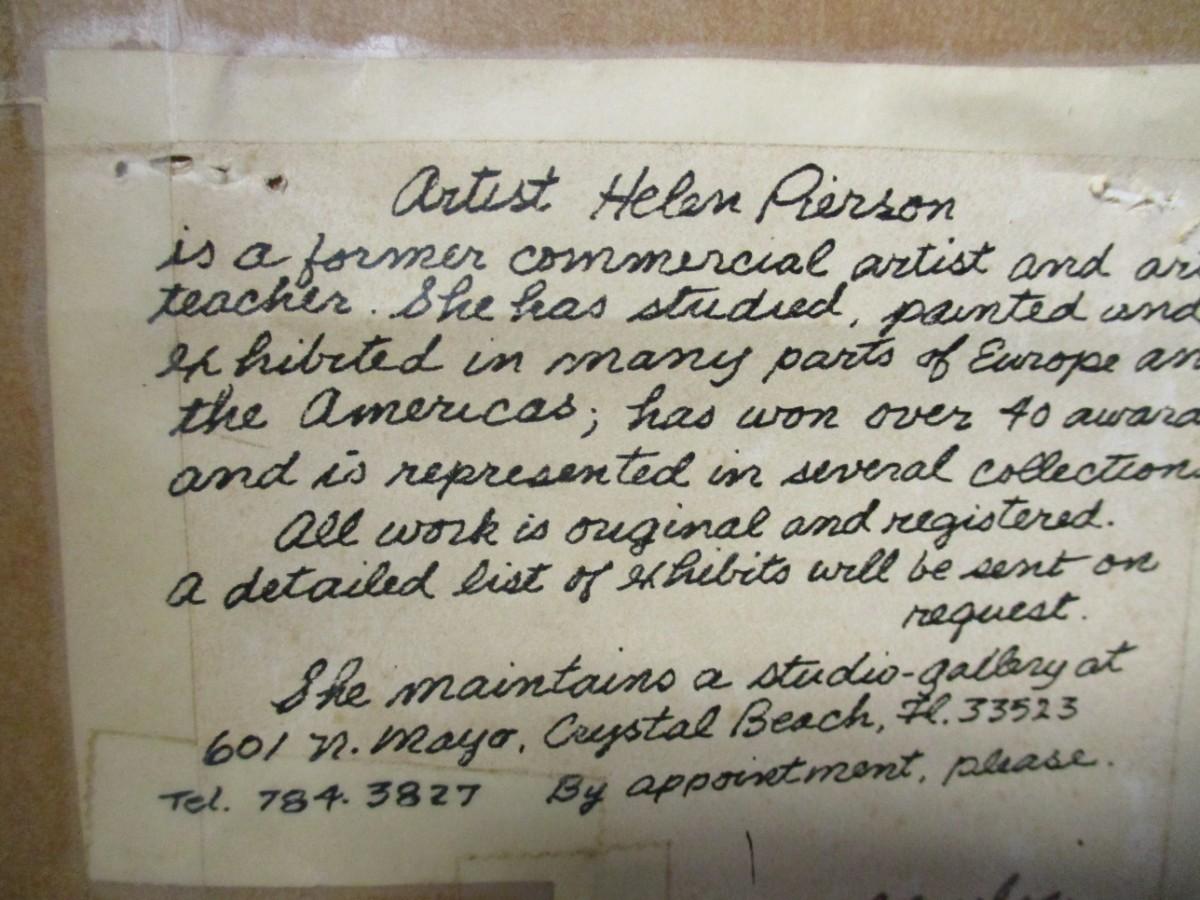 Artist Helen Pierson
is a former commercial artist and ar
teacher. She has studied, painted and
exhibited in many parts of Europe an
the Americas; has won over 40 award
and is represented in several collection
All work is original and registered.
A detailed list of exhibits will be sent on
request.
She maintains a studio-gallery at
601 N. Mayo, Crystal Beach, Fl. 33523
Tel. 784.3827 By appointment, please.